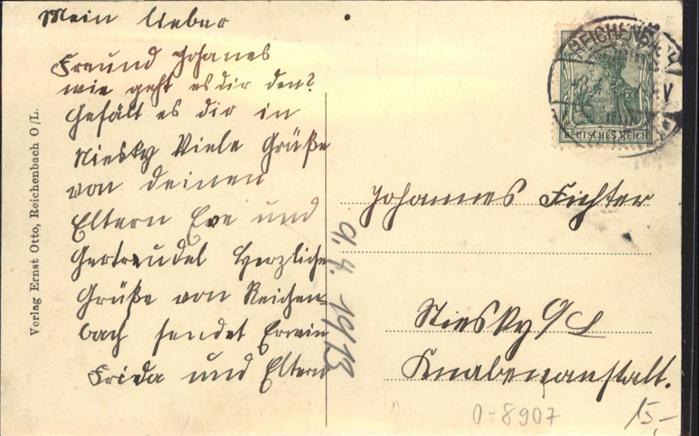 Mein lieber
Freund Johanes
wie geht es dir den?
Gefält es dir in
Niesky Viele Grüße
von deinen
Eltern Eve und
Gertreudel Herzliche
Grüße von Reichen
bach sendet Erwin
Frida und Eltern
Verlag Ernst Otto, Reichenbach O/L.
9. 4. 1913
REICHENBACH
DEUTSCHES REICH
Johannes Fichter
Niesky O/L
Knabenanstalt.
0-8907
15,-